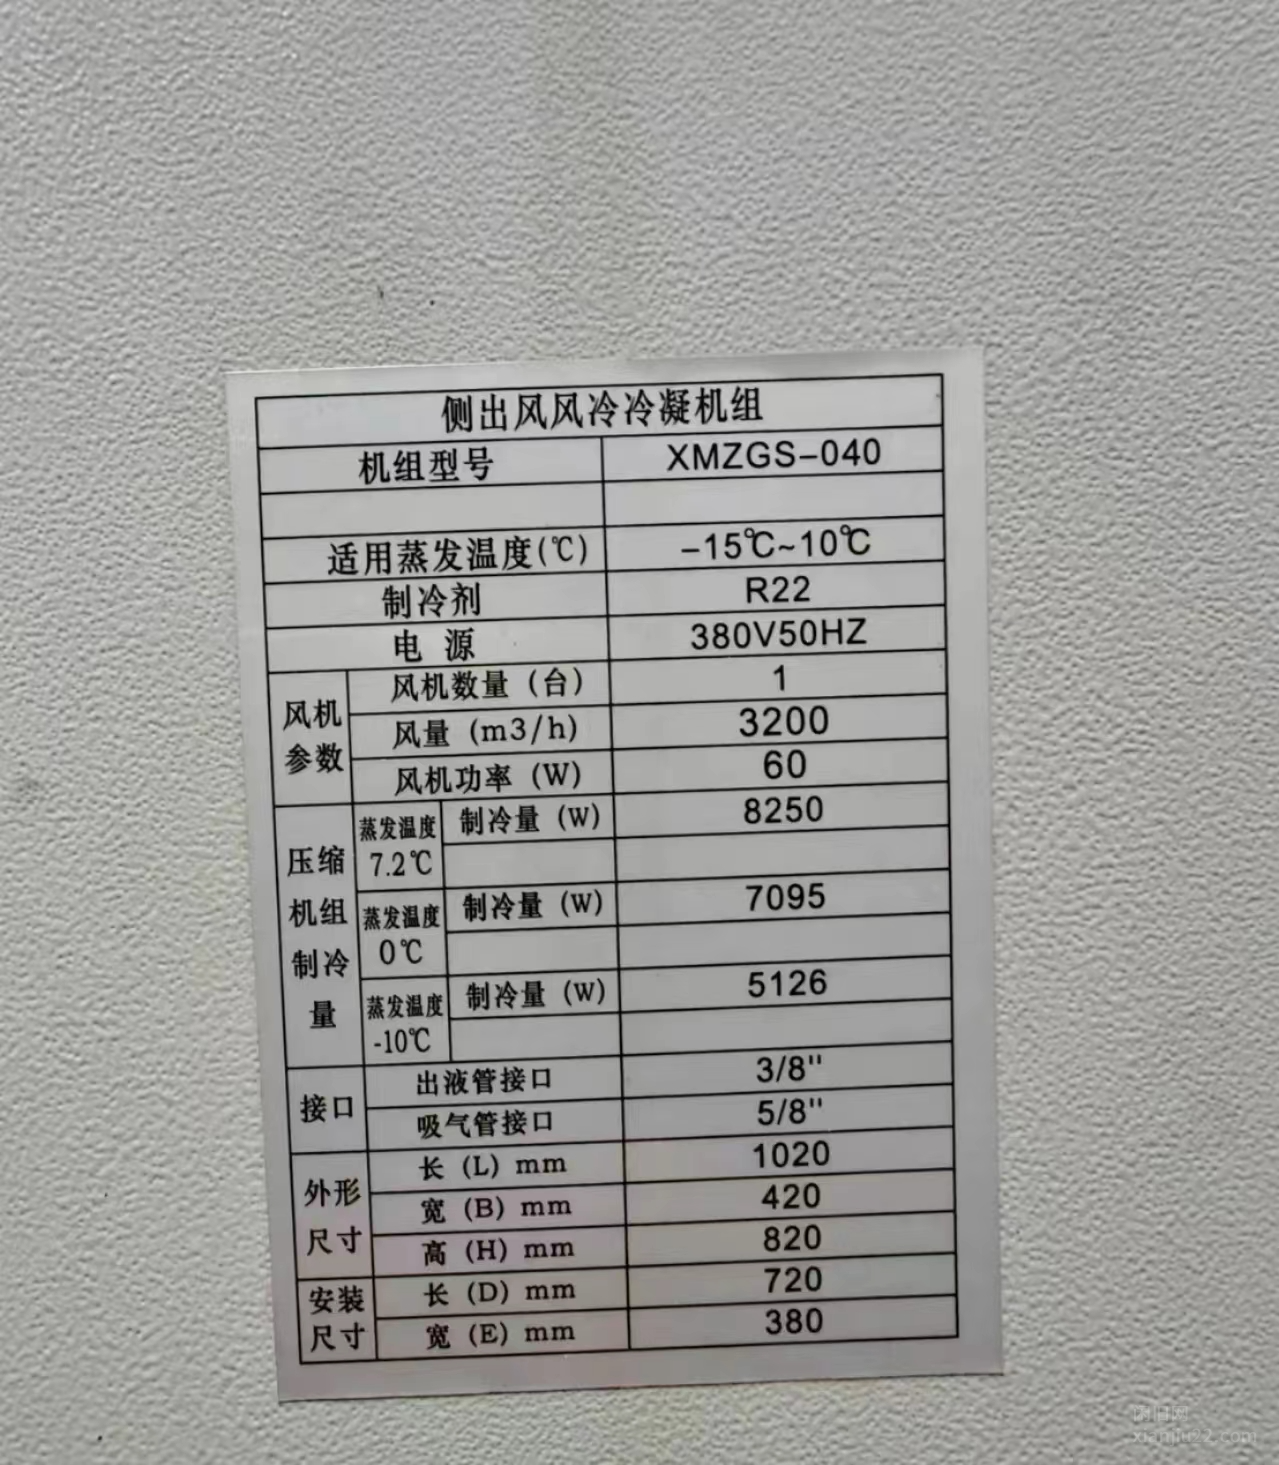 侧出风风冷冷凝机组
机组型号 XMZGS-040
适用蒸发温度(℃) -15℃~10℃
制冷剂 R22
电 源 380V50HZ
风机参数
风机数量 (台) 1
风量 (m3/h) 3200
风机功率 (W) 60
压缩机组制冷量
蒸发温度 7.2℃ 制冷量 (W) 8250
蒸发温度 0℃ 制冷量 (W) 7095
蒸发温度 -10℃ 制冷量 (W) 5126
接口
出液管接口 3/8"
吸气管接口 5/8"
外形尺寸
长 (L) mm 1020
宽 (B) mm 420
高 (H) mm 820
安装尺寸
长 (D) mm 720
宽 (E) mm 380
xianliu22.com